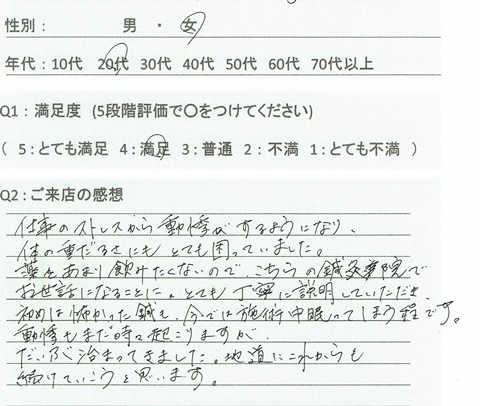 性別： 男 ・ 女
年代：10代 20代 30代 40代 50代 60代 70代以上
Q1：満足度 (5段階評価で〇をつけてください)
( 5：とても満足 4：満足 3：普通 2：不満 1：とても不満 )
Q2：ご来店の感想
仕事のストレスから動悸がするようになり、
体の重だるさにもとても困っていました。
薬をあまり飲みたくないので、こちらの鍼灸院で
お世話になることに。とても丁寧に説明していただき
初めは怖かった鍼も、今では施術中眠ってしまう程です。
動悸もまだ時々起こりますが、
だいぶ治まってきました。地道にこれからも
続けていこうと思います。